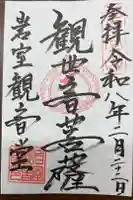 奉拝 令和八年二月二十二日
観世音菩薩
岩室観音堂